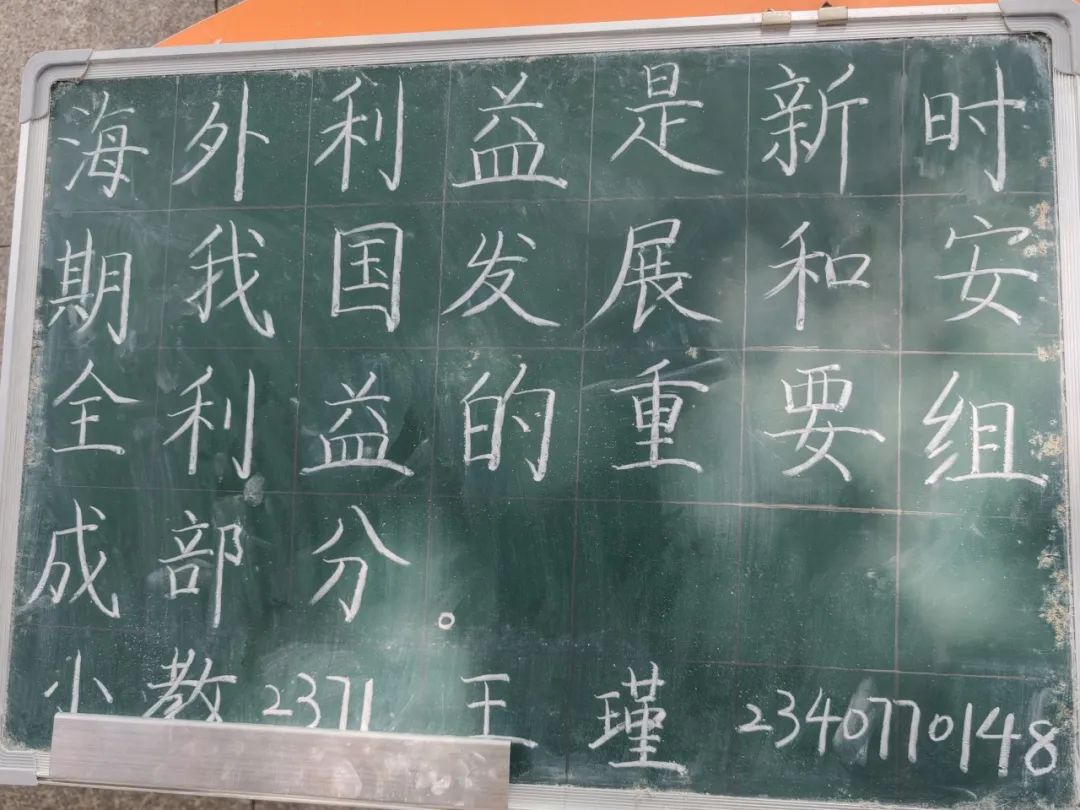 海外利益是新时
期我国发展和安
全利益的重要组
成部分。
小教2371 王瑾 2340770148